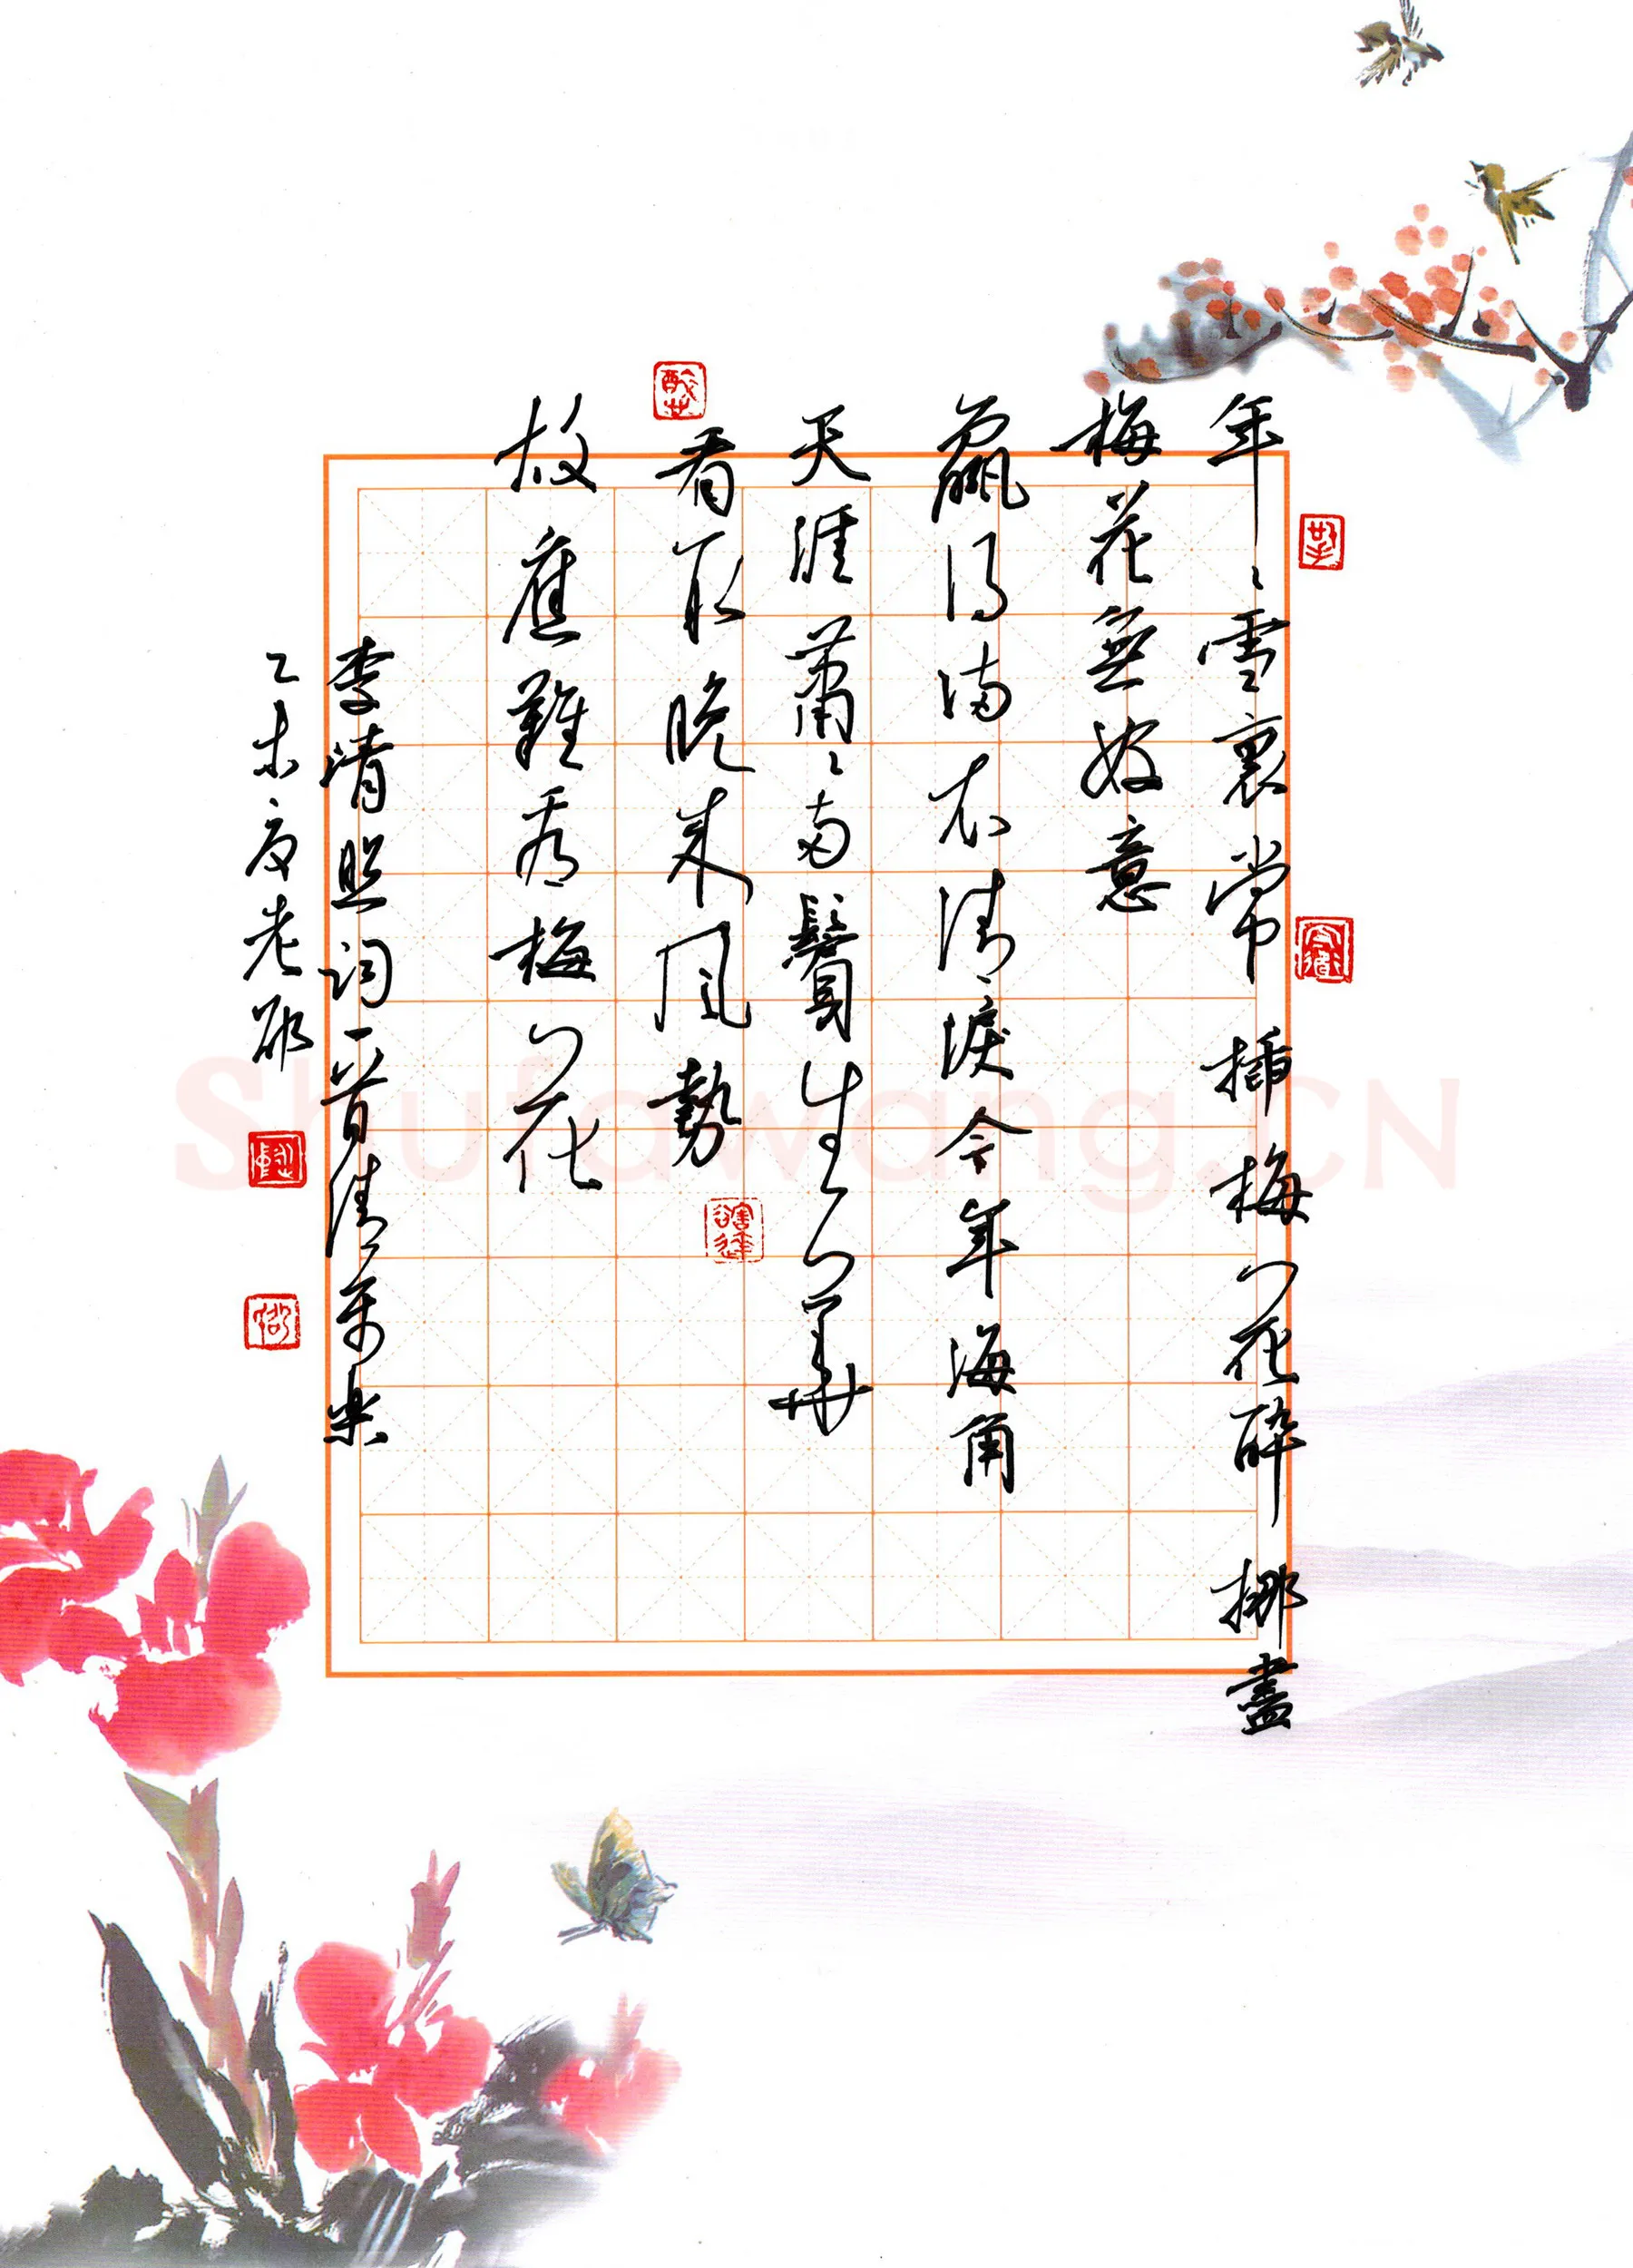 年々雪裏常插梅花醉挪盡
梅花無好意
贏得滿衣清淚今年海角
天涯蕭々兩鬢生華
看取晚來風勢
故應難看梅花
李清照詞一首清平樂
乙未夏老
Shufawang.CN